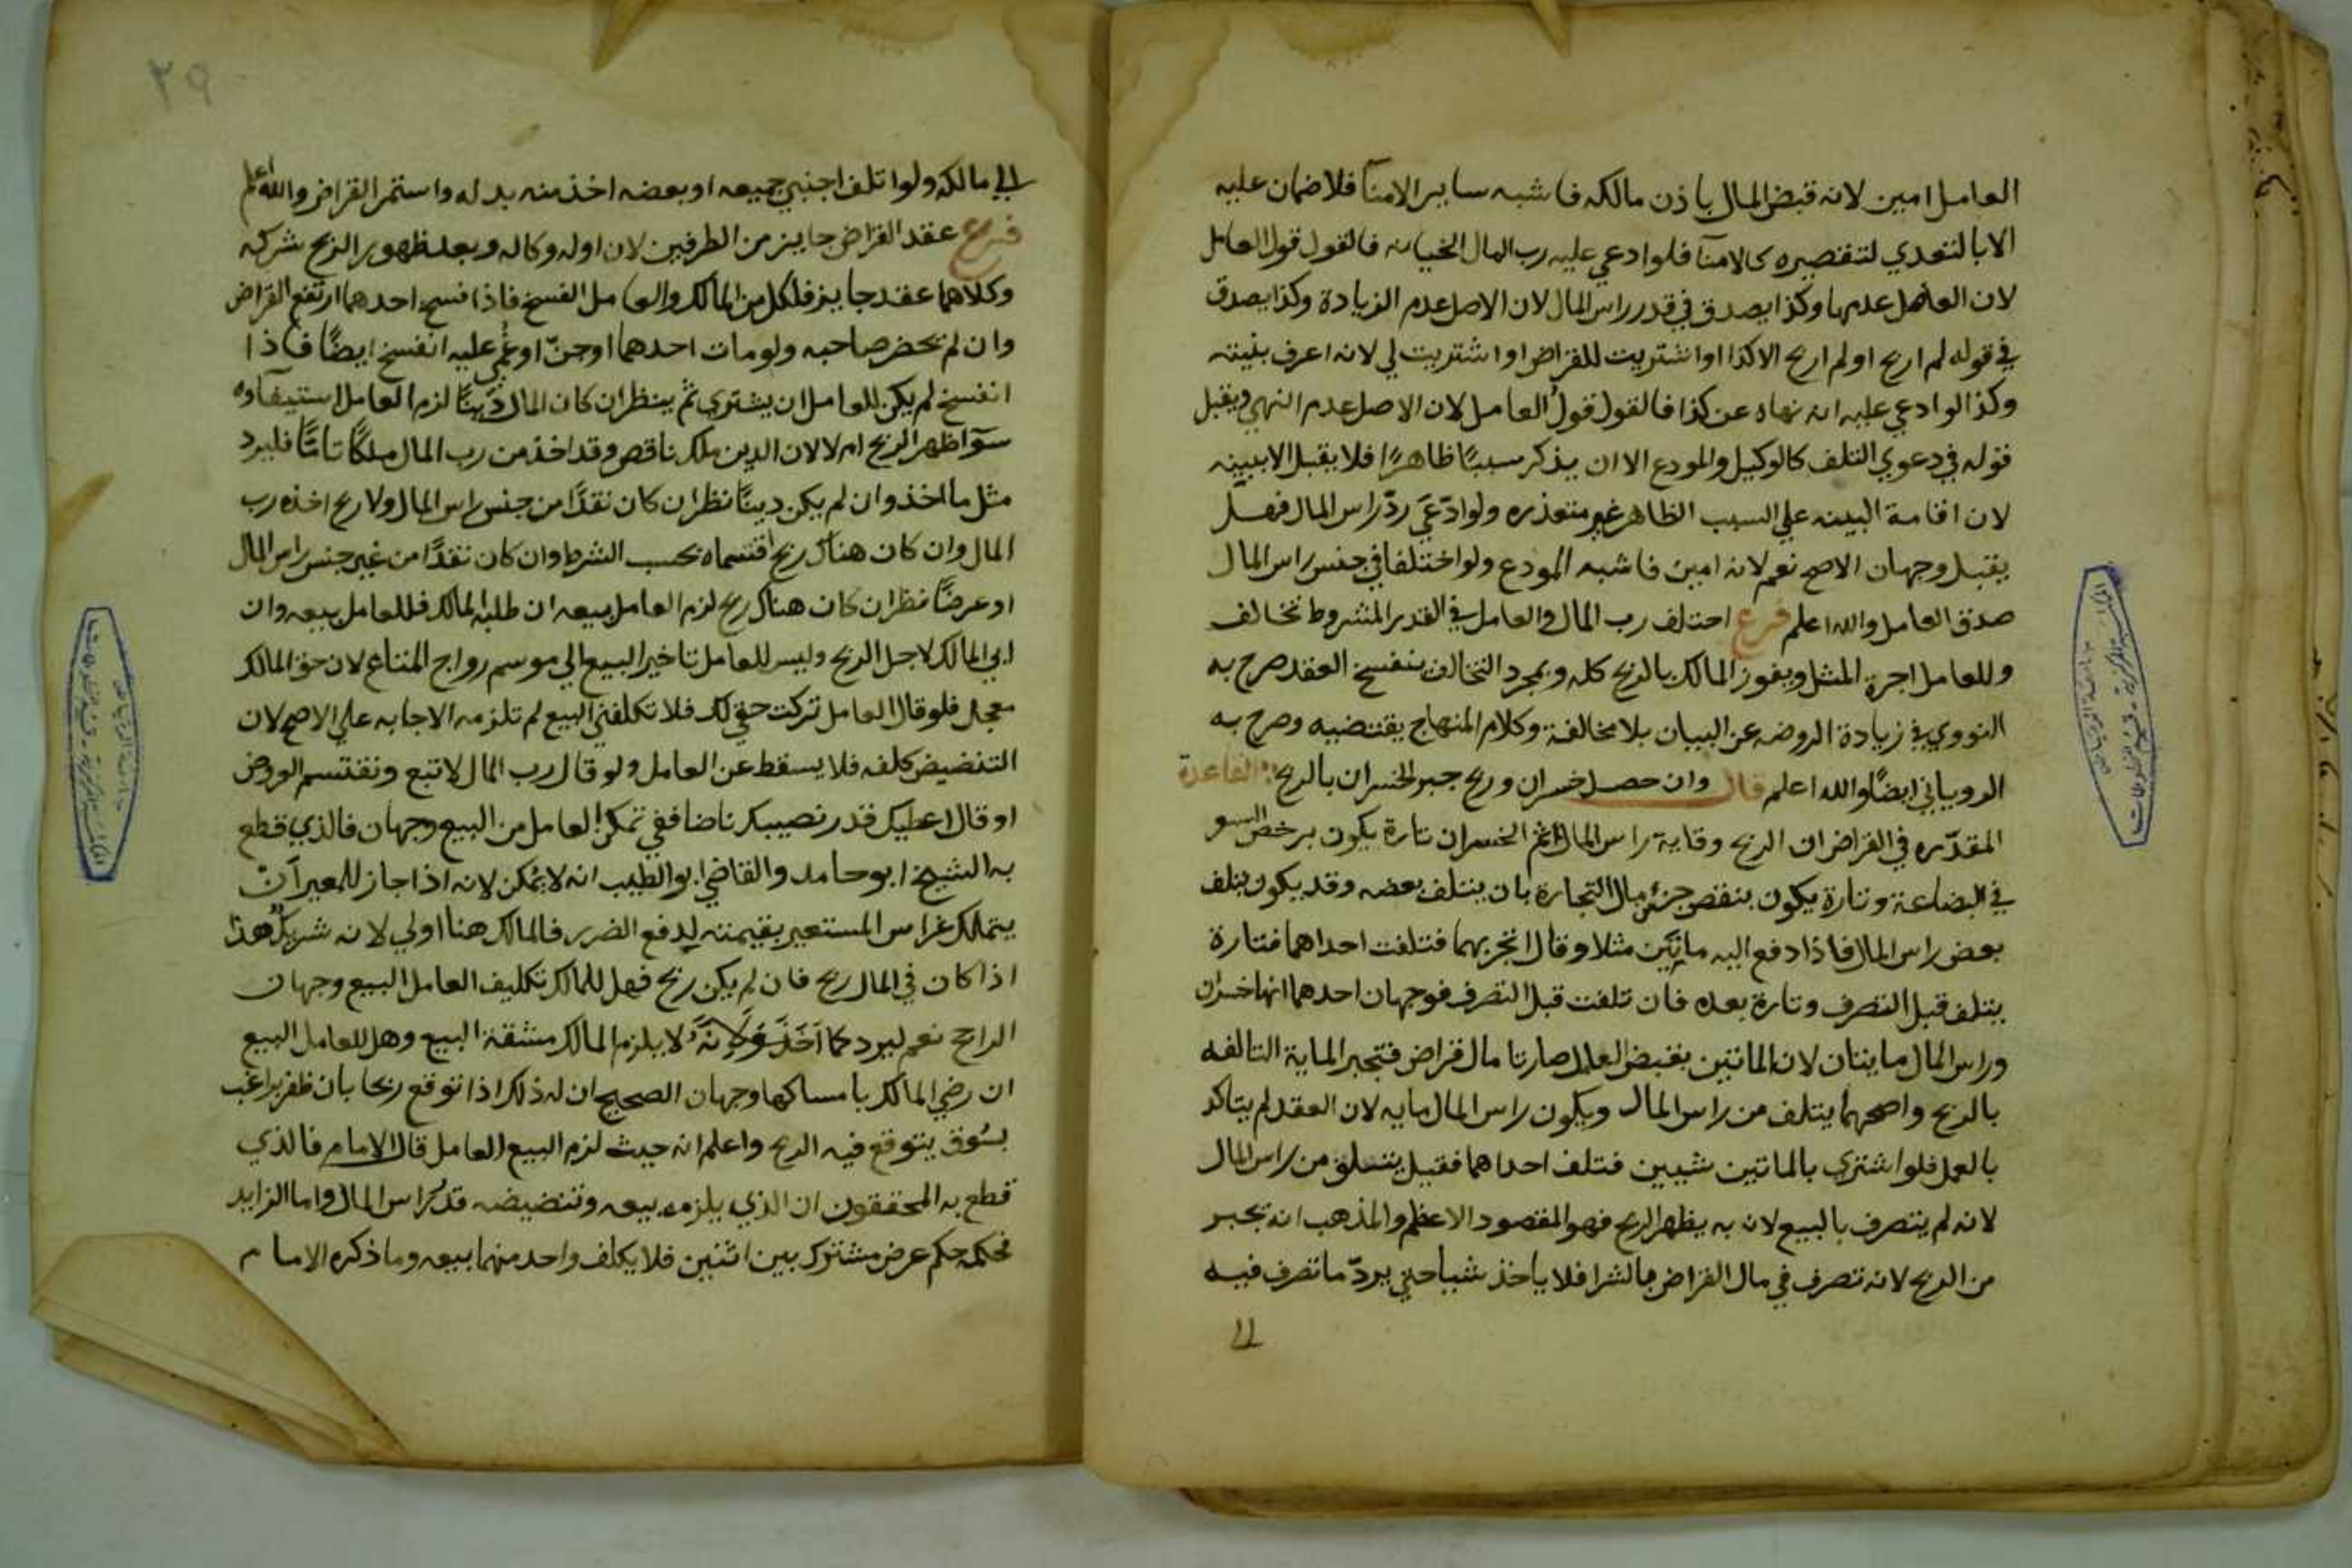 العامل امين لانه قبض المال باذن مالكه فاشبه ساير الامنآ فلا ضمان عليه
الا بالتعدي لتقصيره كالامنآ فلو ادعي عليه رب المال الخيانه فالقول قول العامل
لان الاصل عدمها وكذا يصدق في قدر راس المال لان الاصل عدم الزيادة وكذا يصدق
في قوله لم اربح او لم اربح الا كذا او اشتريت للقراض او اشتريت لي لانه اعرف بنيته
وكذا لو ادعي عليه انه نهاه عن كذا فالقول قول العامل لان الاصل عدم النهي ويقبل
قوله في دعوي التلف كالوكيل والمودع الا ان يذكر سببًا ظاهرًا فلا يقبل الا ببينه
لان اقامة البينه علي السبب الظاهر غير متعذره ولو ادّعيَ ردّ راس المال فهل
يقبل وجهان الاصح نعم لانه امين فاشبه المودع ولو اختلفا في جنس راس المال
صدق العامل والله اعلم فرع اختلف رب المال والعامل في القدر المشروط تخالف
وللعامل اجرة المثل ويفوز المالك بالربح كله وبمجرد التخالف ينفسخ العقد صرح به
النووي في زيادة الروضه عن البيان بلا مخالفة وكلام المنهاج يقتضيه وصرح به
الروياني ايضًا والله اعلم قال وان حصل خسران وربح جبر الخسران بالربح القاعدة
المقدّره في القراض ان الربح وقاية راس المال ثم الخسران تارة يكون برخص السو
في البضاعة وتارة يكون بنقص جزء من مال التجارة بان يتلف بعضه وقد يكون بتلف
بعض راس المال فاذا دفع اليه مايتين مثلا وقال اتجر بهما فتلفت احداهما فتارة
يتلف قبل التصرف وتارة بعده فان تلفت قبل التصرف فوجهان احدهما انها خسران
وراس المال مايتان لان المائتين بقبض العامل صارتا مال قراض فتجبر الماية التالفه
بالربح واصحهما يتلف من راس المال ويكون راس المال مايه لان العقد لم يتاكد
بالعمل فلو اشتري بالمائتين شيين فتلف احداهما فقيل يتلف من راس المال
لانه لم يتصرف بالبيع لان به يظهر الربح فهو المقصود الاعظم والمذهب انه يجبر
من الربح لانه تصرف في مال القراض بالشرا فلا ياخذ شيا حتي يردّ ما تصرف فيه
الي
الي مالكه ولو اتلف اجنبي جميعه او بعضه اخذ منه بدله واستمر القراض والله اعلم
فرع عقد القراض جايز من الطرفين لان اوله وكاله وبعد ظهور الربح شركه
وكلاهما عقد جايز فلكل من المالك والعامل الفسخ فاذا فسخ احدهما ارتفع القراض
وان لم يحضر صاحبه ولو مات احدهما او جنّ او غمي عليه انفسخ ايضًا فاذا
انفسخ لم يكن للعامل ان يشتري ثم ينظر ان كان المال دينًا لزم العامل استيفآوه
سوآ ظهر الربح ام لا لان الدين ملك ناقص وقد اخذ من رب المال ملكًا تامًّا فليرد
مثل ما اخذ وان لم يكن دينًا نظر ان كان نقدًا من جنس راس المال ولا ربح اخذه رب
المال وان كان هناك ربح اقتسماه بحسب الشرط وان كان نقدًا من غير جنس راس المال
او عرضًا نظر ان كان هناك ربح لزم العامل بيعه ان طلبه المالك فللعامل بيعه وان
ابي المالك لاجل الربح وليس للعامل تاخير البيع الي موسم رواج المتاع لان حق المالك
معجل فلو قال العامل تركت حقي لك فلا تكلفني البيع لم تلزمه الاجابه علي الاصح لان
التنضيض كلفه فلا يسقط عن العامل ولو قال رب المال لا تبع ونقتسم العروض
او قال اعطيك قدر نصيبك ناضا ففي تمكن العامل من البيع وجهان فالذي قطع
به الشيخ ابو حامد والقاضي ابو الطيب انه لا يمكن لانه اذا جاز للمعير انْ
يتملك غراس المستعير بقيمته لدفع الضرر فالمالك هنا اولي لانه شريك هذا
اذا كان في المال ربح فان لم يكن ربح فهل للمالك تكليف العامل البيع وجهان
الراجح نعم ليرد كما اَخَذَ وَلاَنّهُ لا يلزم المالك مشقة البيع وهل للعامل البيع
ان رضي المالك بامساكها وجهان الصحيح ان له ذلك اذا توقع ربحا بان ظفر براغب
بسُوق يتوقع فيه الربح واعلم انه حيث لزم البيع العامل قال الامام فالذي
قطع به المحققون ان الذي يلزمه بيعه وتنضيضه قدر راس المال واما الزايد
فحكمه حكم عرض مشترك بين اثنين فلا يكلف واحد منهما بيعه وما ذكره الامام
٣٩